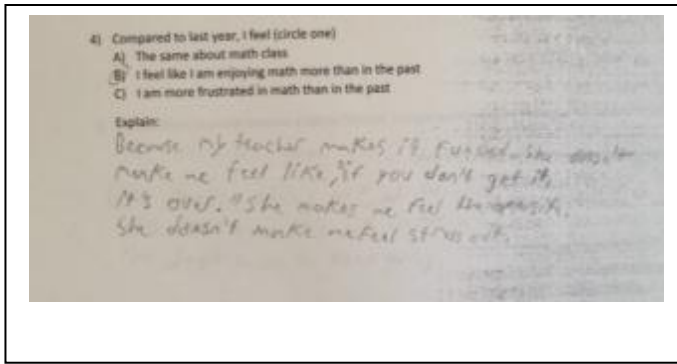 4) Compared to last year, I feel (circle one)
A) The same about math class
B) I feel like I am enjoying math more than in the past
C) I am more frustrated in math than in the past
Explain:
Because my teacher makes it fun and she doesn't
make me feel like, "if you don't get it,
it's over." She makes me feel the opposite.
She doesn't make me feel stress out.